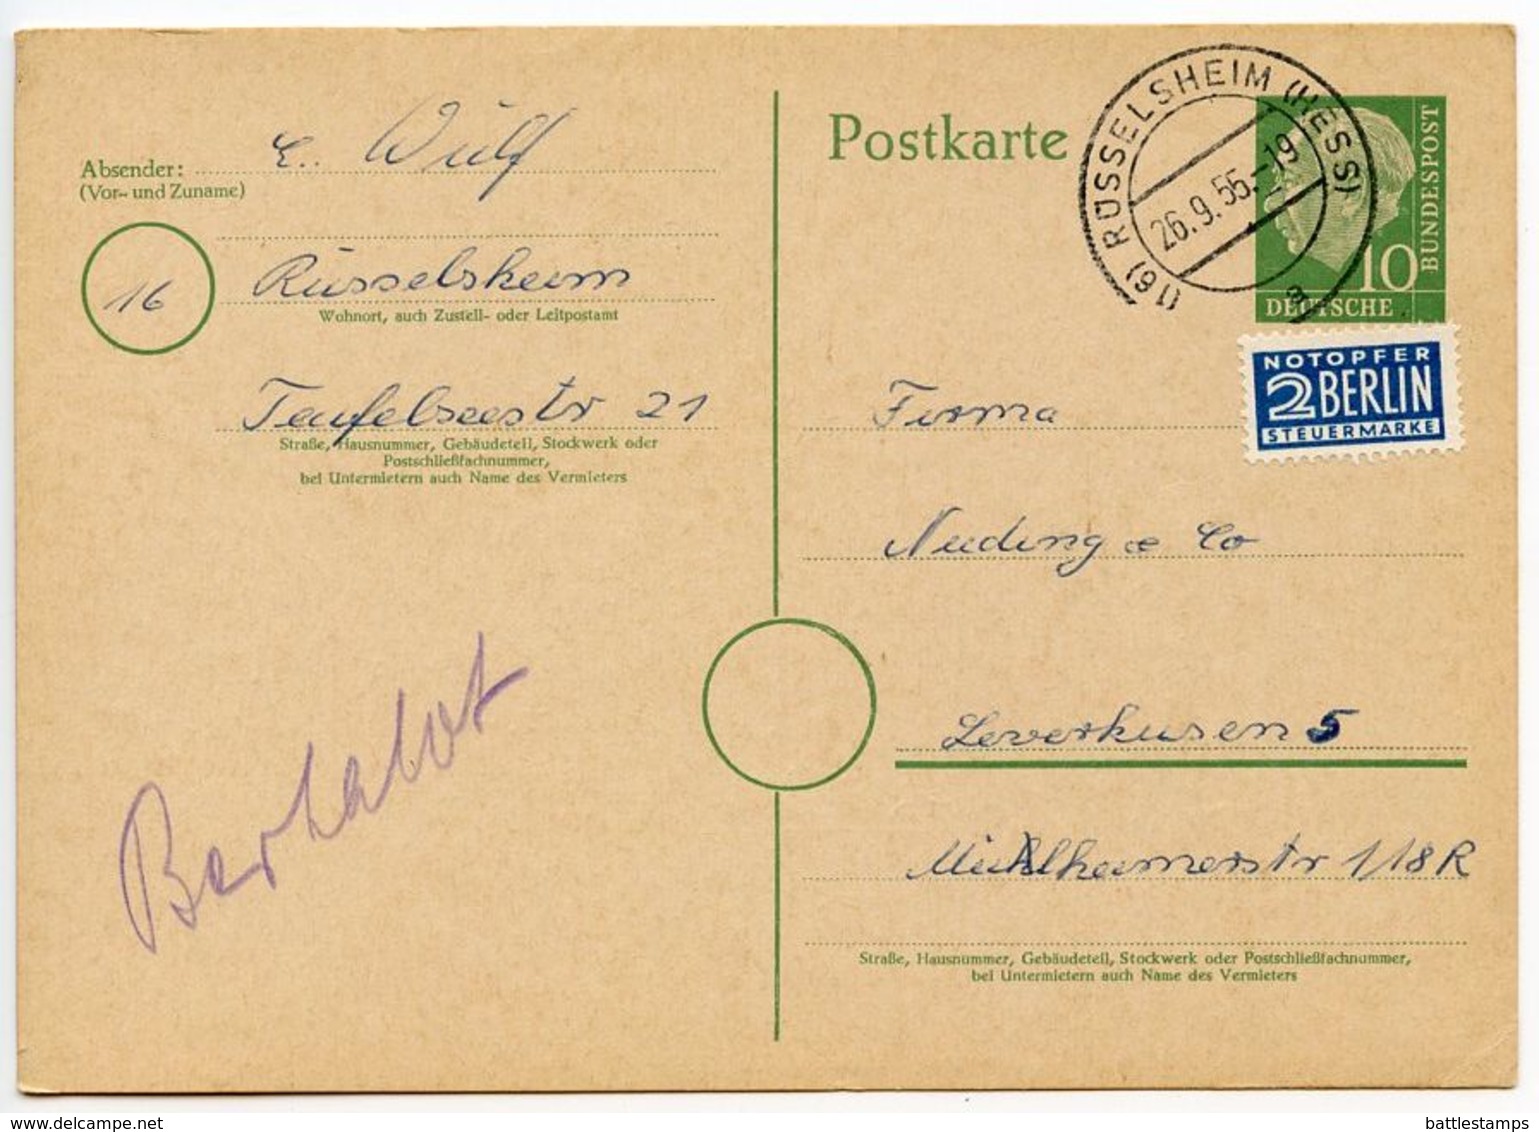 Absender: E. Wulf
(Vor- und Zuname)
16
Rüsselsheim
Wohnort, auch Zustell- oder Leitpostamt
Teufelseestr 21
Straße, Hausnummer, Gebäudeteil, Stockwerk oder
Postschließfachnummer,
bei Untermietern auch Name des Vermieters
Postkarte
(16) RÜSSELSHEIM (HESS)
26.9.55.-19
a
10
DEUTSCHE
BUNDESPOST
NOTOPFER
2 BERLIN
STEUERMARKE
Firma
Nuding & Co
Leverkusen 5
Mülheimerstr 118R
Straße, Hausnummer, Gebäudeteil, Stockwerk oder Postschließfachnummer,
bei Untermietern auch Name des Vermieters
delcampe.net
battlestamps